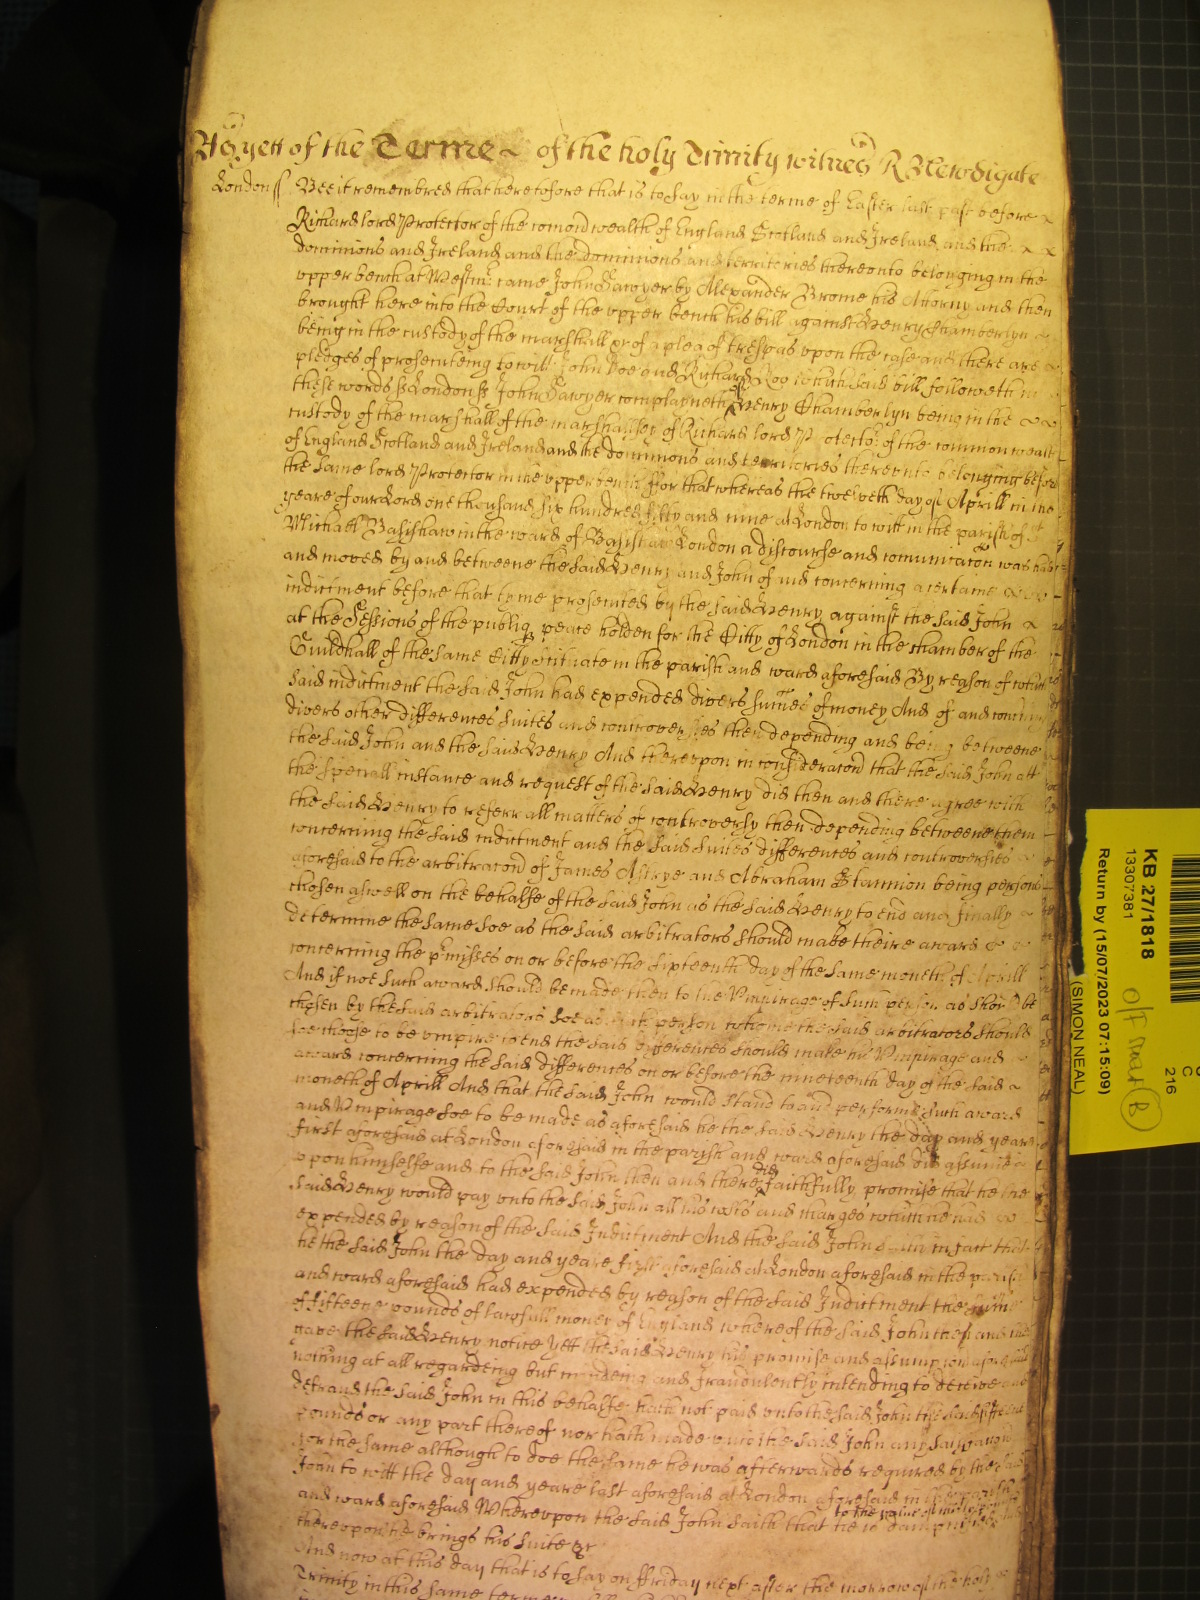 As yett of the Terme of the holy Trinity witnes R Newdigate
London ss Bee it remembred that heretofore that is to say in the terme of Easter last past before
Richard lord Protector of the comonwealth of England Scotland and Ireland and the
dominions and Ireland and the dominions and territories thereonto belonging in the
upper bench at Westmr came John Sawyer by Alexander Brome his Attorny and then
brought here into the Court of the upper bench his bill against Henry Chamberlyn
being in the custody of the marshall &c of a plea of trespas upon the case and there are
pledges of prosecuteing to witt John Doe and Richard Roo which said bill followeth in
these words ss London ss John Sawyer complayneth of Henry Chamberlyn being in the
custody of the marshall of the marshallsey of Richard lord Protector of the common wealth
of England Scotland and Ireland and the dominions and territories thereonto belonging before
the same lord Protector in the upper bench ffor that whereas the twelveth day of Aprill in the
yeare of our Lord one thousand six hundred fifty and nine at London to witt in the parish of St
Michaell Basishaw in the ward of Basishaw London a discourse and comunicacon was had
and moved by and betweene the said Henry and John of and concerning a certaine
indictment before that tyme prosecuted by the said Henry against the said John
at the Sessions of the publiq peace holden for the Citty of London in the chamber of the
Guildhall of the same Citty scituate in the parish and ward aforesaid By reason of which
said indictment the said John had expended divers sumes of money And of and concerning
divers other differences suites and controversies then depending and being betweene
the said John and the said Henry And thereupon in consideracond that the said John att
the speciall instance and request of the said Henry did then and there agree with
the said Henry to referr all matters of controversy then depending betweene them
concerning the said indictment and the said suites differences and controversies
aforesaid to the arbitracond of James Astrye and Abraham Stannion being persons
chosen aswell on the behalfe of the said John as the said Henry to end and finally
determine the same soe as the said arbitrators should make theire award
concerning the pmisses on or before the sixteenth day of the same moneth of Aprill
And if noe such award should be made then to the Vmpirage of such person as should be
chosen by the said arbitrators soe as such person whome the said arbitrators should
soe choose to be vmpire to end the said differences should make his Vmpirage and
award concerning the said differences on or before the nineteenth day of the said
moneth of Aprill And that the said John would stand to and performe such award
and Vmpirage soe to be made as aforesaid he the said Henry the day and yeare
first aforesaid at London aforesaid in the parish and ward aforesaid did assume
upon himselfe and to the said John then and there did faithfully promise that he the
said Henry would pay unto the said John all his costs and charges which he had
expended by reason of the said Indictment And the said John saith in fact that
he the said John the day and yeare first aforesaid at London aforesaid in the parish
and ward aforesaid had expended by reason of the said Indictment the summe
of fifteene pounds of lawfull money of England whereof the said John then and there
gave the said Henry notice Yett the said Henry his promise and assumpcon aforesaid
nothing at all regardeing but mindeing and fraudulently intending to deceive and
defraud the said John in this behalfe hath not paid unto the said John the said fifteene
pounds or any part thereof nor hath made unto the said John any satisfaccon
for the same although to doe the same he was afterwards required by the said
John to witt the day and yeare last aforesaid at London aforesaid in the parish
and ward aforesaid Whereupon the said John saith that he is damnified to the value of
thereupon he brings his suite &c
And now at this day that is to say on ffriday next after the morrow of the holy
Trinity in this same terme